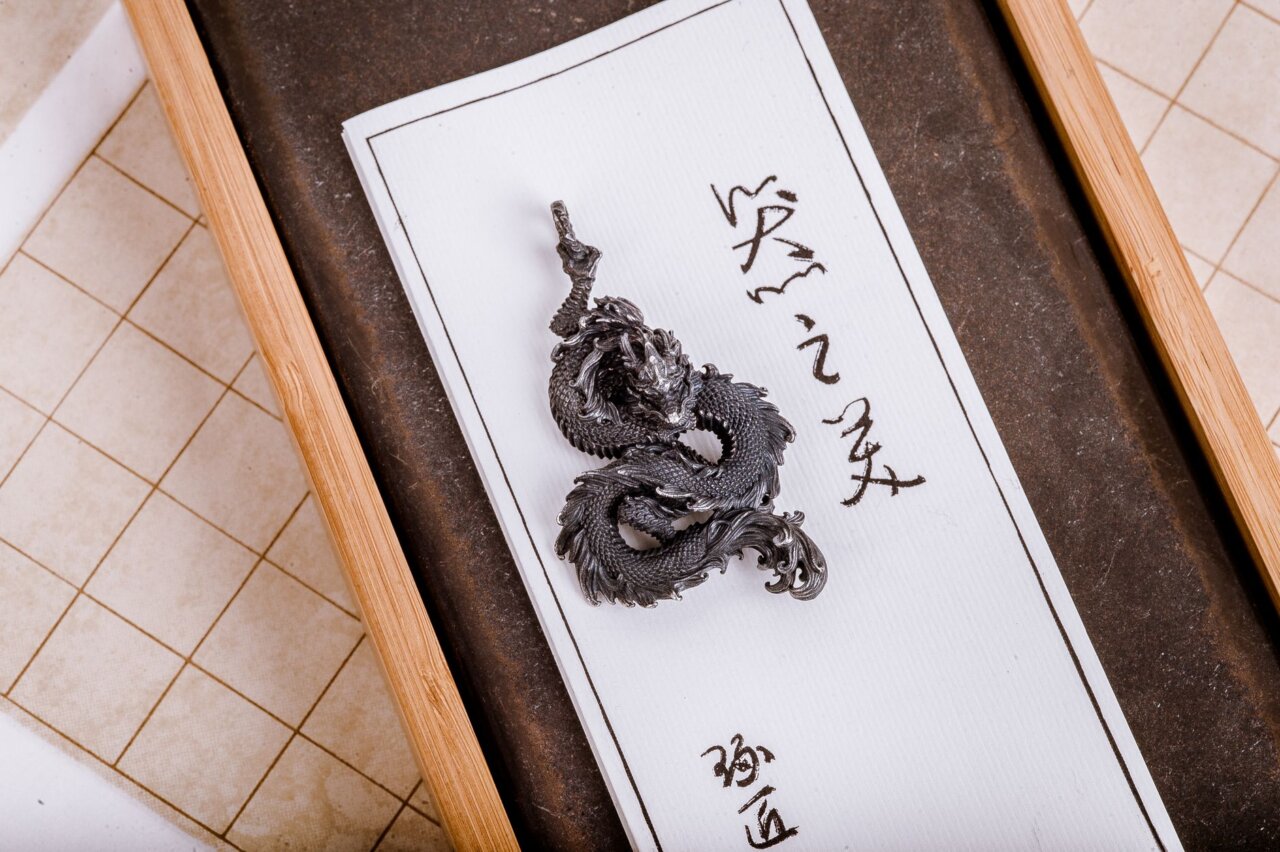 器之美
琢匠